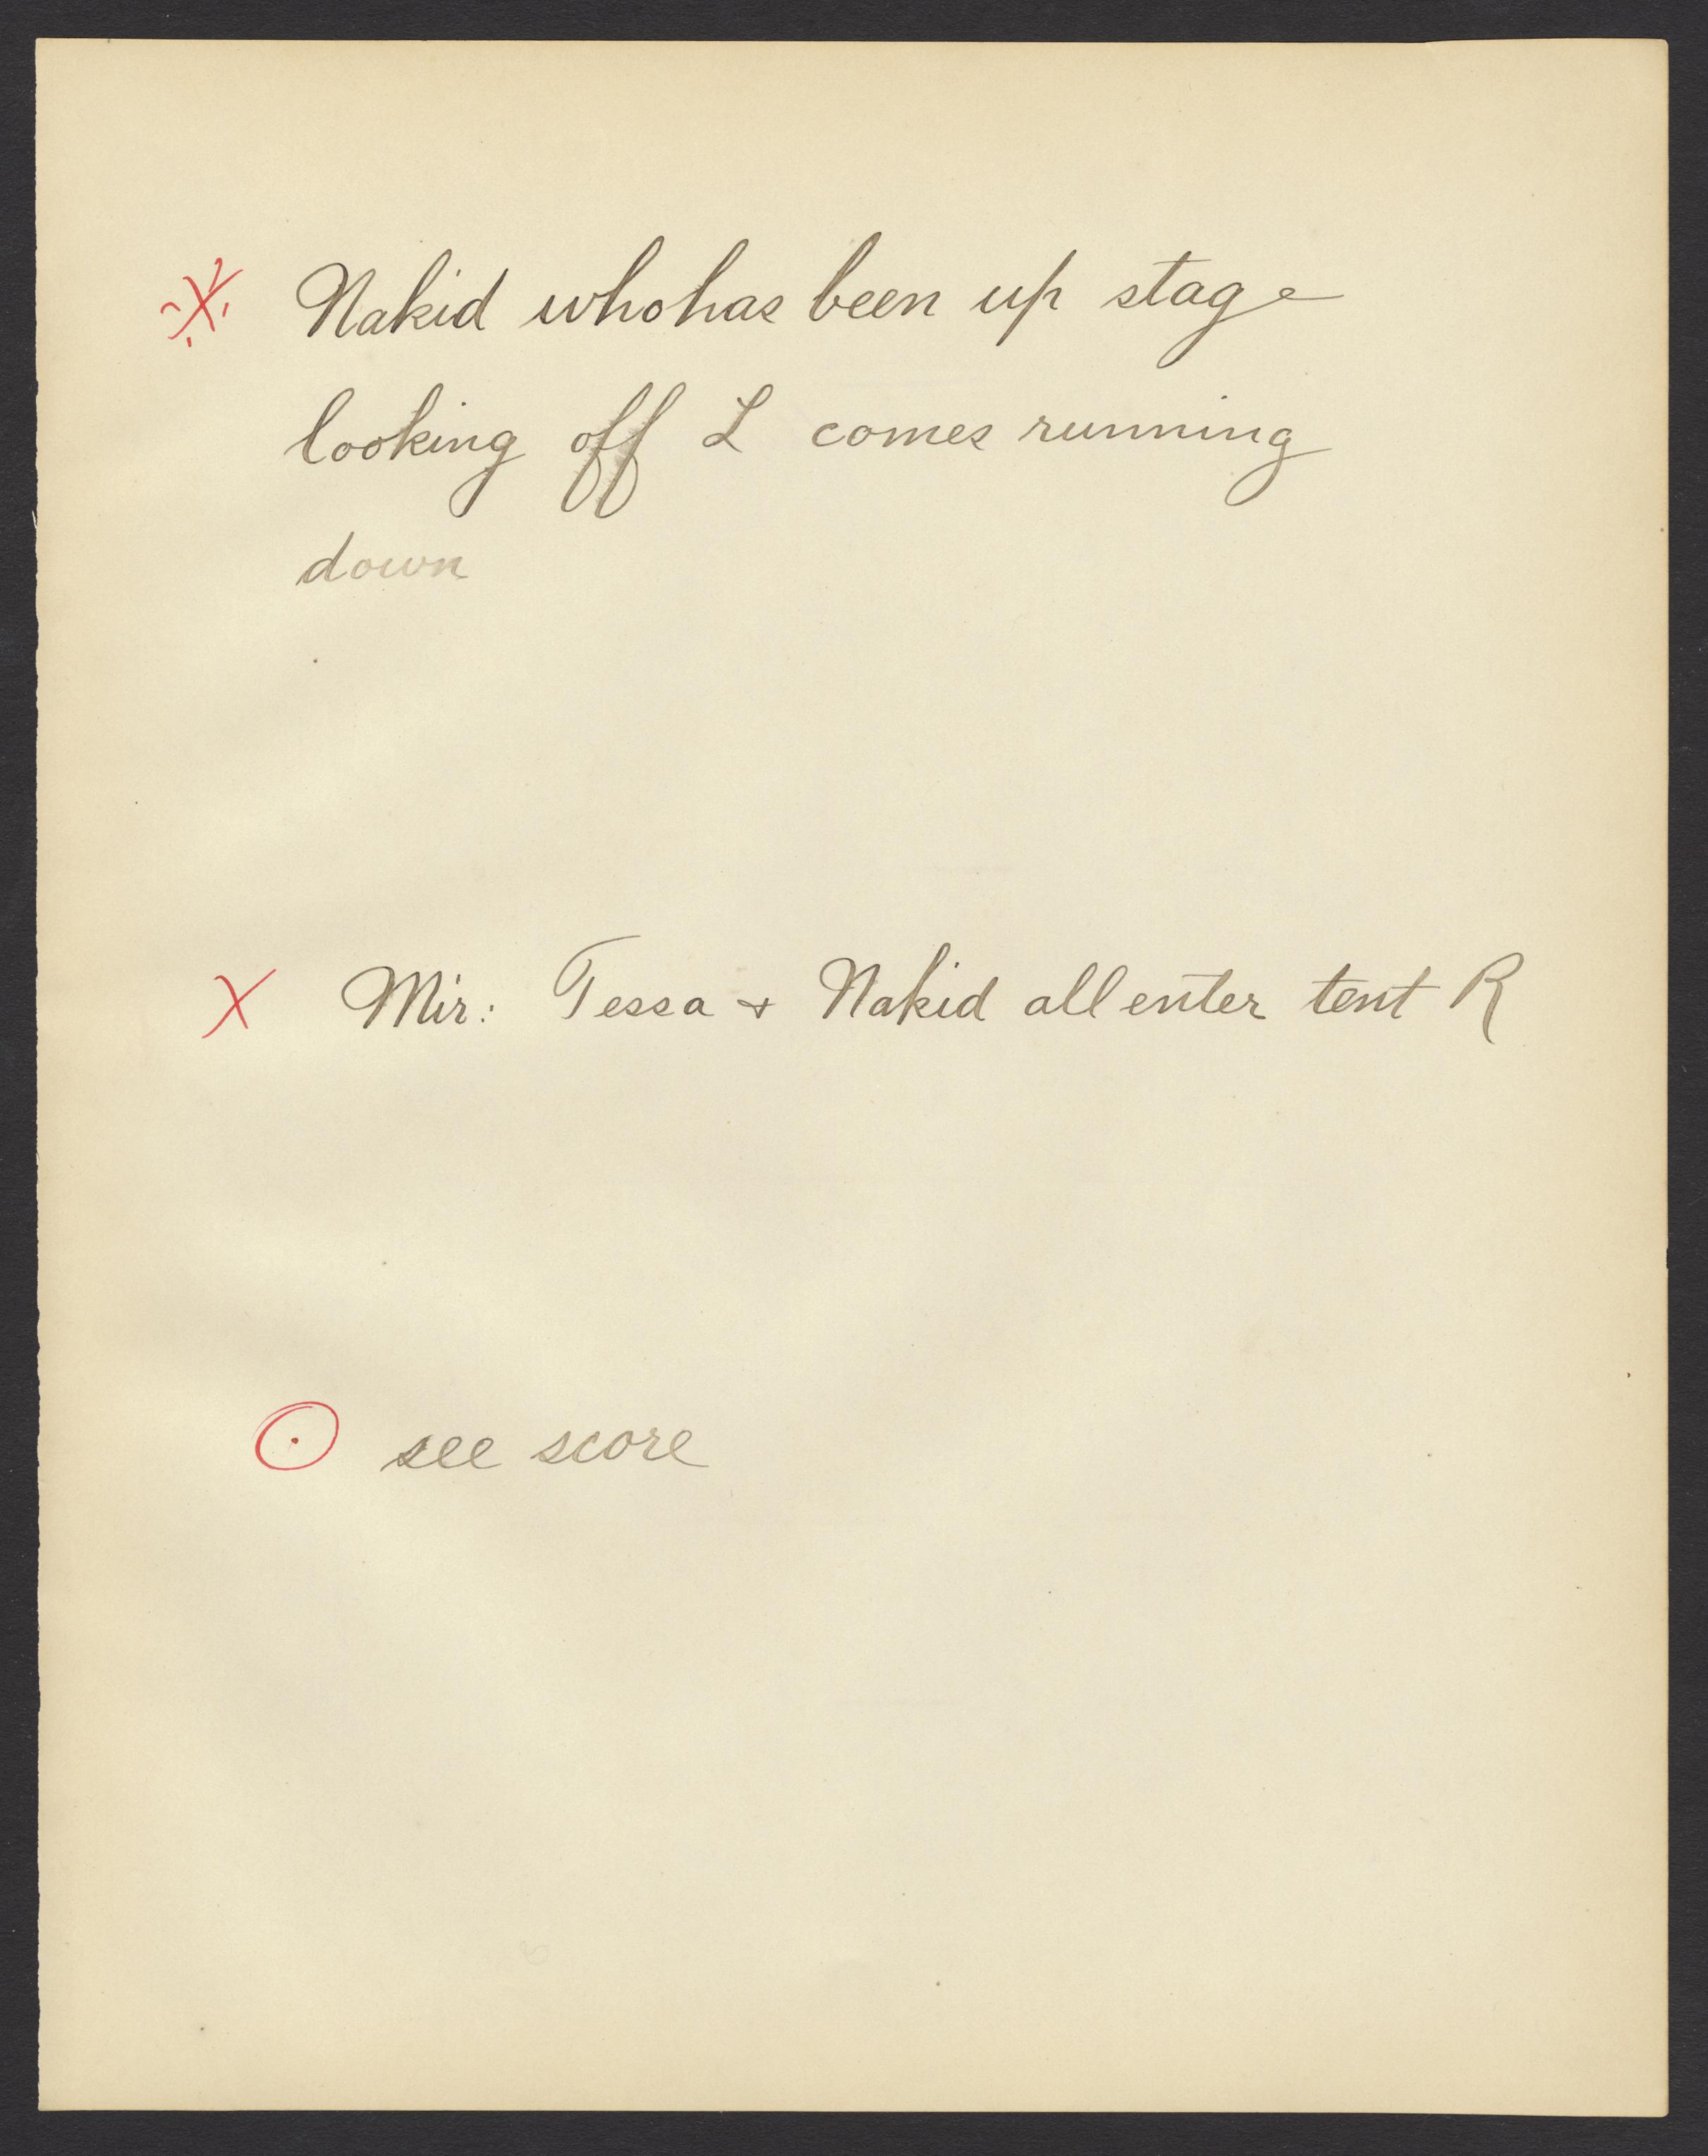 ※ Nakid who has been up stage
looking off L comes running
down
X Mir: Tessa + Nakid all enter tent R
⊙ see score